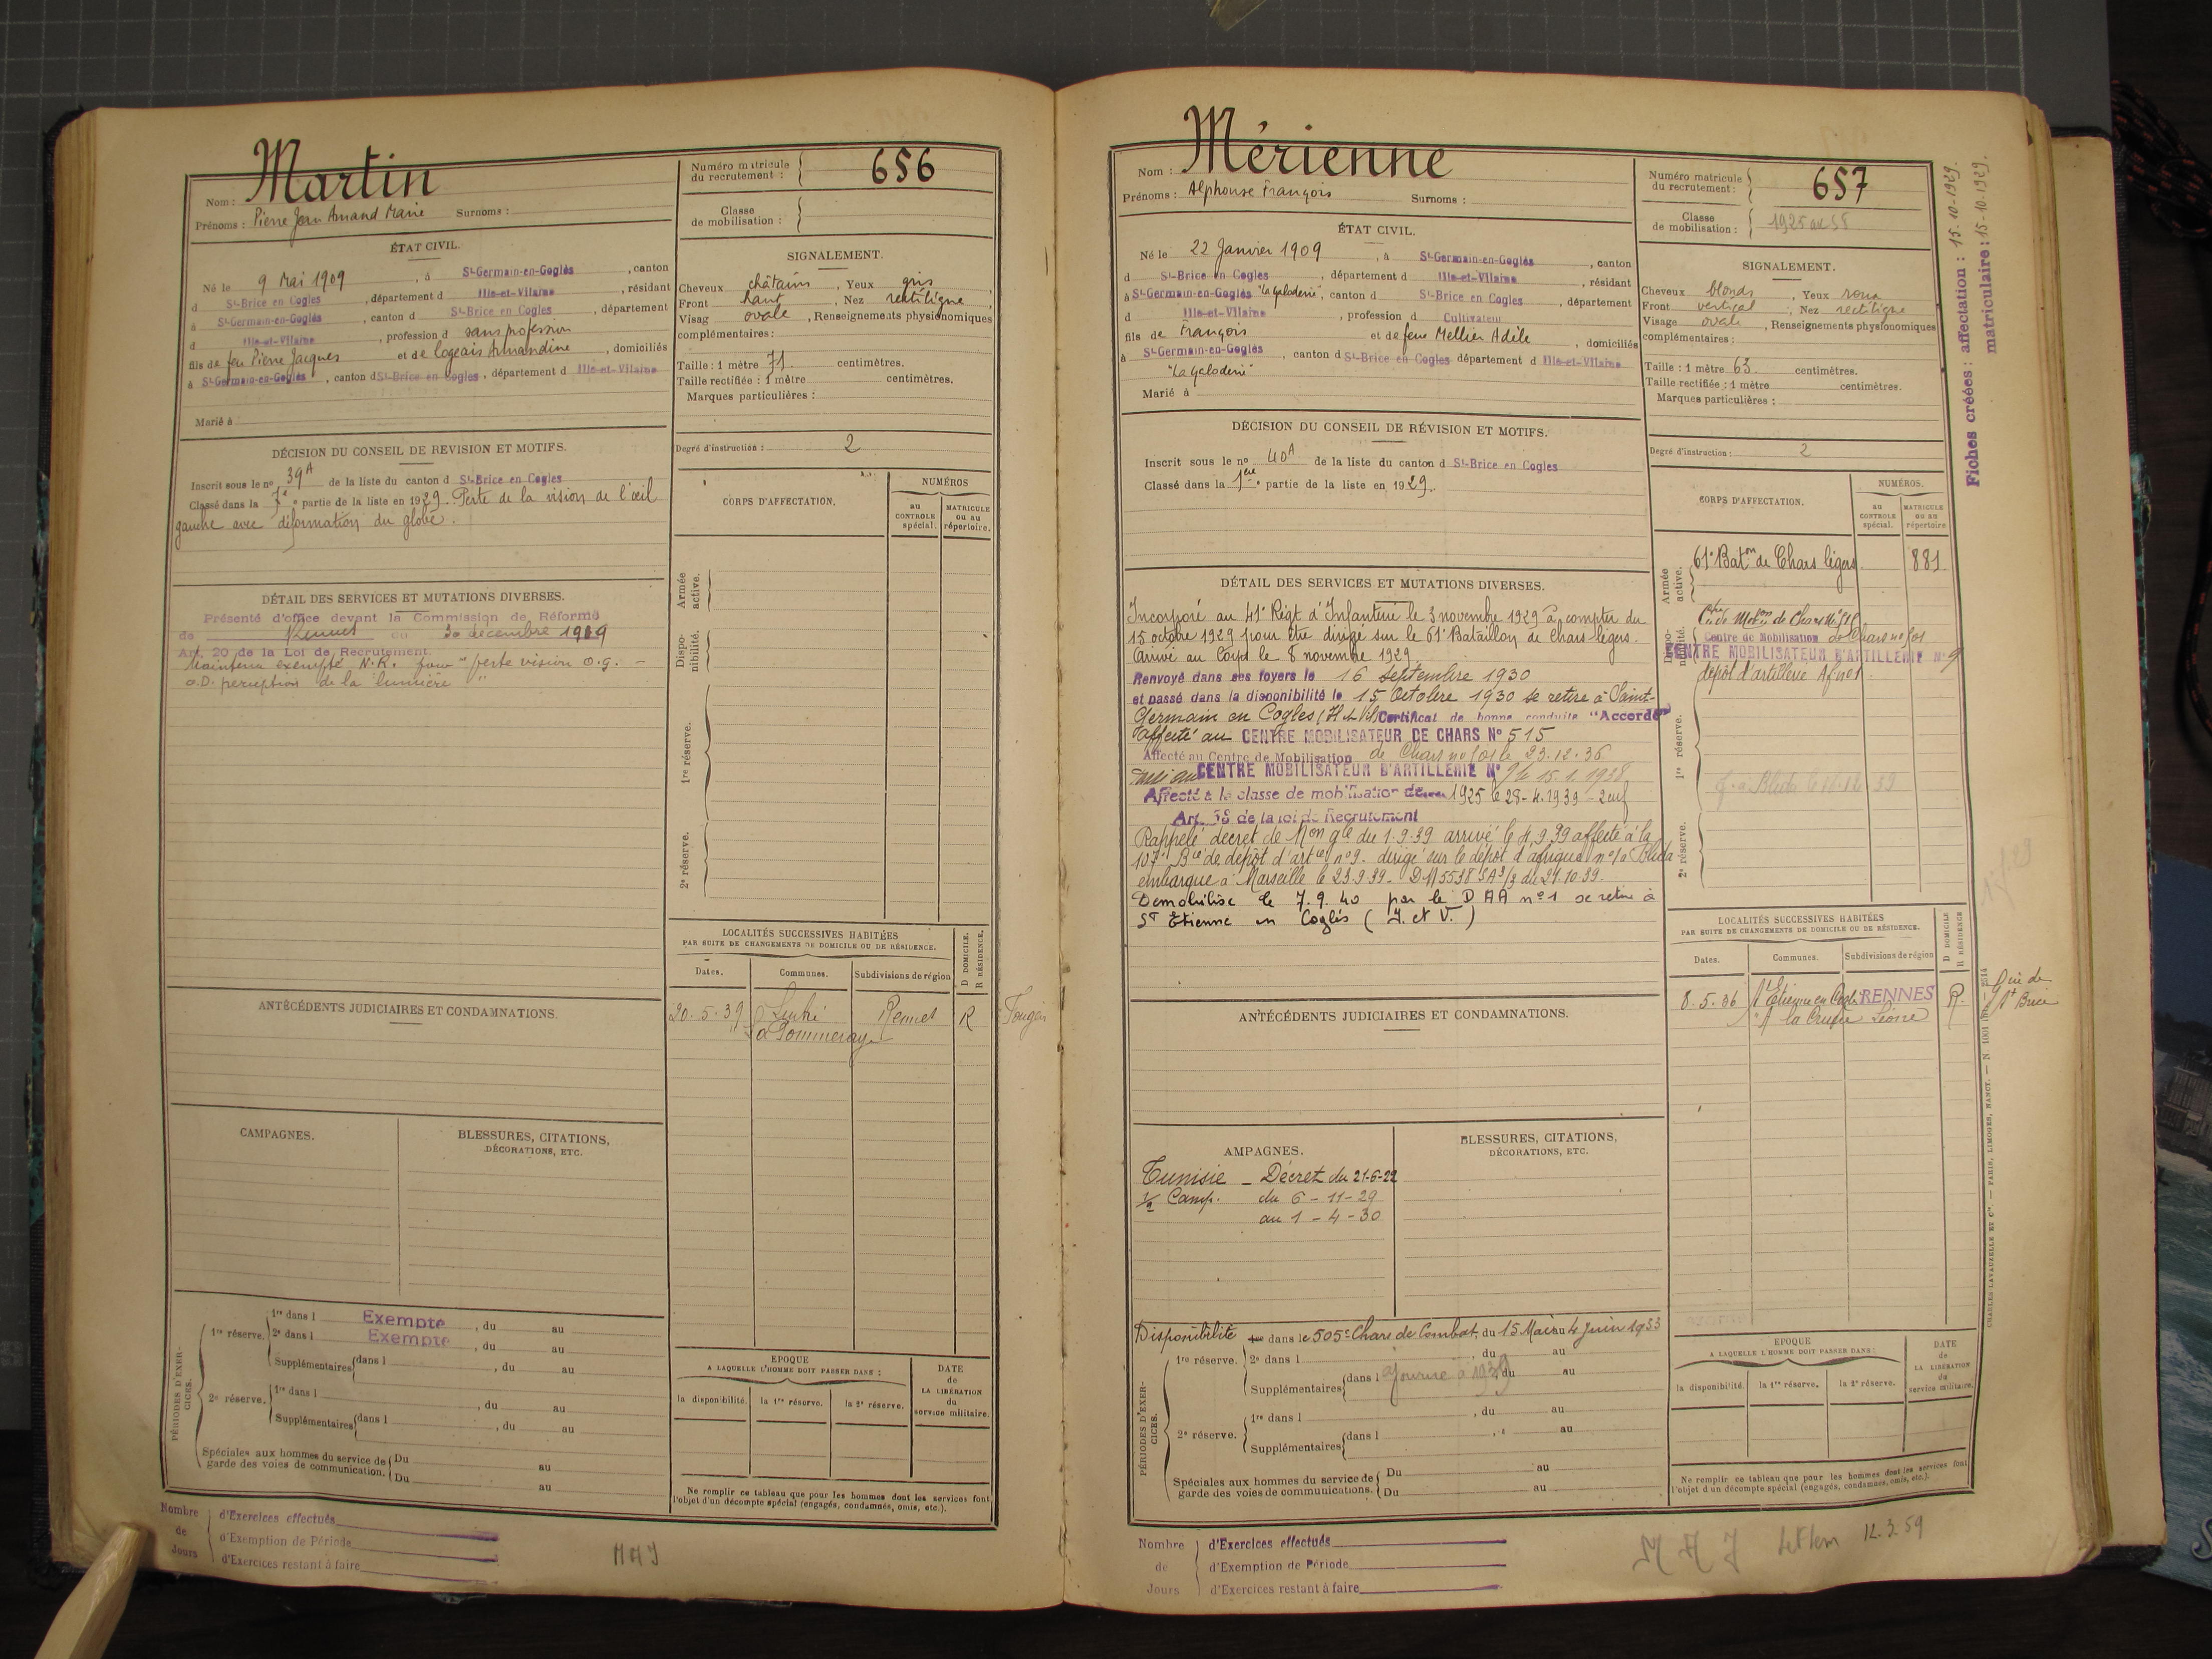 Martin
Nom :
Prénoms : Pierre Jean Amand Marie Surnoms :
Numéro matricule du recrutement : 656
Classe de mobilisation :
ÉTAT CIVIL.
Né le 9 Mai 1909, à St-Germain-en-Coglès, canton
d St-Brice en Cogles, département d Ille-et-Vilaine, résidant
à St-Germain-en-Coglès, canton d St-Brice en Cogles, département
d Ille-et-Vilaine, profession d sans profession
fils de feu Pierre Jacques et de Logeais Armandine, domiciliés
à St-Germain-en-Coglès, canton d St-Brice en Cogles, département d Ille-et-Vilaine
Marié à
SIGNALEMENT.
Cheveux châtains, Yeux gris,
Front haut, Nez rectiligne,
Visag ovale, Renseignements physionomiques
complémentaires :
Taille : 1 mètre 71 centimètres.
Taille rectifiée : 1 mètre centimètres.
Marques particulières :
DÉCISION DU CONSEIL DE REVISION ET MOTIFS.
Inscrit sous le no 39A de la liste du canton d St-Brice en Cogles
Classé dans la partie de la liste en 1929. Perte de la vision de l'œil
gauche avec déformation du globe.
Degré d'instruction : 2
DÉTAIL DES SERVICES ET MUTATIONS DIVERSES.
Présenté d'office devant la Commission de Réforme
de Rennes du 30 décembre 1929
Art. 20 de la Loi de Recrutement.
Maintenu exempté N.R. pour "perte vision O.G. -
O.D. perception de la lumière"
CORPS D'AFFECTATION.
NUMÉROS
au CONTROLE spécial.
MATRICULE ou au répertoire.
Armée active.
Disponibilité.
1re réserve.
2e réserve.
LOCALITÉS SUCCESSIVES HABITÉES
PAR SUITE DE CHANGEMENTS DE DOMICILE OU DE RÉSIDENCE.
D DOMICILE.
R RÉSIDENCE
Dates. Communes. Subdivisions de région
20.5.39 Rennes R
La Pommeraye
ANTÉCÉDENTS JUDICIAIRES ET CONDAMNATIONS.
CAMPAGNES.
BLESSURES, CITATIONS,
DÉCORATIONS, ETC.
PÉRIODES D'EXERCICES.
1re réserve. 1re dans l Exempté, du au
2e dans l Exempté, du au
Supplémentaires dans l, du au
2e réserve. 1re dans l, du au
Supplémentaires dans l, du au
Spéciales aux hommes du service de garde des voies de communication. Du au
Du au
EPOQUE
A LAQUELLE L'HOMME DOIT PASSER DANS :
la disponibilité. la 1re réserve. la 2e réserve.
DATE de LA LIBÉRATION du service militaire.
Ne remplir ce tableau que pour les hommes dont les services font
l'objet d'un décompte spécial (engagés, condamnés, omis, etc.).
Nombre de Jours
d'Exercices effectués
d'Exemption de Période
d'Exercices restant à faire
Mérienne
Nom :
Prénoms : Alphonse François Surnoms :
Numéro matricule du recrutement : 657
Classe de mobilisation :
ÉTAT CIVIL.
Né le 22 Janvier 1909, à St-Germain-en-Coglès, canton
d St-Brice en Cogles, département d Ille-et-Vilaine, résidant
à St-Germain-en-Coglès "La Galoderie", canton d St-Brice en Cogles, département
d Ille-et-Vilaine, profession d Cultivateur
fils de François et de feue Mellier Adèle, domiciliés
à St-Germain-en-Coglès, canton d St-Brice en Cogles département d Ille-et-Vilaine
"La Galoderie"
Marié à
SIGNALEMENT.
Cheveux blonds, Yeux roux
Front vertical, Nez rectiligne
Visage ovale, Renseignements physionomiques
complémentaires :
Taille : 1 mètre 63 centimètres.
Taille rectifiée : 1 mètre centimètres.
Marques particulières :
Fiches créées : affectation : 15-10-1929.
matriculaire : 15-10-1929.
DÉCISION DU CONSEIL DE RÉVISION ET MOTIFS.
Inscrit sous le no 40A de la liste du canton d St-Brice en Cogles
Classé dans la 1ère partie de la liste en 1929.
Degré d'instruction : 2
DÉTAIL DES SERVICES ET MUTATIONS DIVERSES.
Incorporé au 41e Régt d'Infanterie le 3 novembre 1929 à compter du
15 octobre 1929 pour être dirigé sur le 61e Bataillon de chars légers.
Arrivé au Corps le 8 novembre 1929
Renvoyé dans ses foyers le 16 septembre 1930
et passé dans la disponibilité le 15 Octobre 1930 se retire à Saint-
Germain en Cogles (I et V) Certificat de bonne conduite "Accordé"
affecté au CENTRE MOBILISATEUR DE CHARS No 515
Affecté au Centre de Mobilisation de Chars no 501 le 23.12.36
CENTRE MOBILISATEUR D'ARTILLERIE No 9 le 15.1.1938
Affecté à la classe de mobilisation de 1925 le 28-4-1939 - 2 enf
Art. 58 de la loi de Recrutement
Rappelé décret de Mon gle du 1.9.39 arrivé le 4.9.39 affecté à la
107e Bie de dépôt d'artie no 9. dirigé sur le dépôt d'afrique no 1 à Blida
embarqué à Marseille le 23.9.39. DM 5538 du 24.10.39.
Démobilisé le 7.9.40 par le D A A no 1 se retire à
St Etienne en Coglès (I. et V.)
CORPS D'AFFECTATION.
NUMÉROS.
au CONTROLE spécial.
MATRICULE ou au répertoire.
Armée active. 61e Baton de Chars légers 881
Disponibilité.
Centre de Mobilisation de Chars no 501
CENTRE MOBILISATEUR D'ARTILLERIE No 9
dépôt d'artillerie Af no 1
1re réserve.
2e réserve.
LOCALITÉS SUCCESSIVES HABITÉES
PAR SUITE DE CHANGEMENTS DE DOMICILE OU DE RÉSIDENCE.
D DOMICILE
R RÉSIDENCE
Dates. Communes. Subdivisions de région
8.5.36 St Etienne en Cogl. RENNES R.
ANTÉCÉDENTS JUDICIAIRES ET CONDAMNATIONS.
AMPAGNES.
Tunisie - Décret du 21-6-22
1/2 Camp. du 6-11-29
au 1-4-30
BLESSURES, CITATIONS,
DÉCORATIONS, ETC.
PÉRIODES D'EXERCICES.
Disponibilité dans le 505e Chars de Combat, du 15 Mai au 4 Juin 1933
1re réserve. 2e dans l, du au
Supplémentaires dans l ajourné à 1939 du au
2e réserve. 1re dans l, du au
Supplémentaires dans l au
Spéciales aux hommes du service de garde des voies de communications. Du au
Du au
EPOQUE
A LAQUELLE L'HOMME DOIT PASSER DANS :
la disponibilité. la 1re réserve. la 2e réserve.
DATE de LA LIBÉRATION du service militaire.
Ne remplir ce tableau que pour les hommes dont les services font
l'objet d'un décompte spécial (engagés, condamnés, omis, etc.).
Nombre de Jours
d'Exercices effectués
d'Exemption de Période
d'Exercices restant à faire
12.3.59